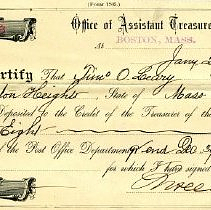 (Form 1505.)
Office of Assistant Treasure
BOSTON, MASS.
No
Jany
ertify That Timo O. Leary
ton Heights, State of Mass
Deposited to the Credit of the Treasurer of the
Eight
the Post Office Department, qr end Dec 3
for which I have signed
Three